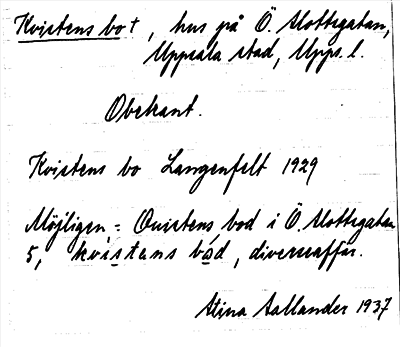 Kvistens bo †, hus på Ö. Slottsgatan,
Uppsala stad, Upps. l.
Obekant.
Kvistens bo Langenfelt 1929
Möjligen = Quistens bod i Ö. Slottsgatan
5, kvistens bod, diverseaffär.
Stina Sallander 1937